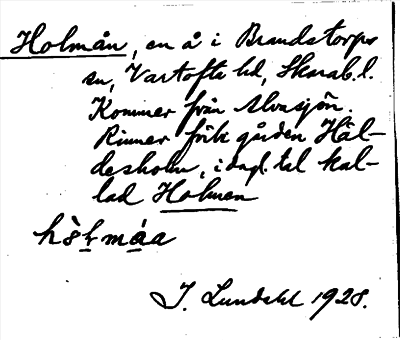 Holmån, en å i Brandstorps
sn, Vartofta hd, Skarab. l.
Kommer från Alvasjön.
Rinner förbi gården Häl-
desholm, i dagl. tal kal-
lad Holmen
J. Lundahl 1928.